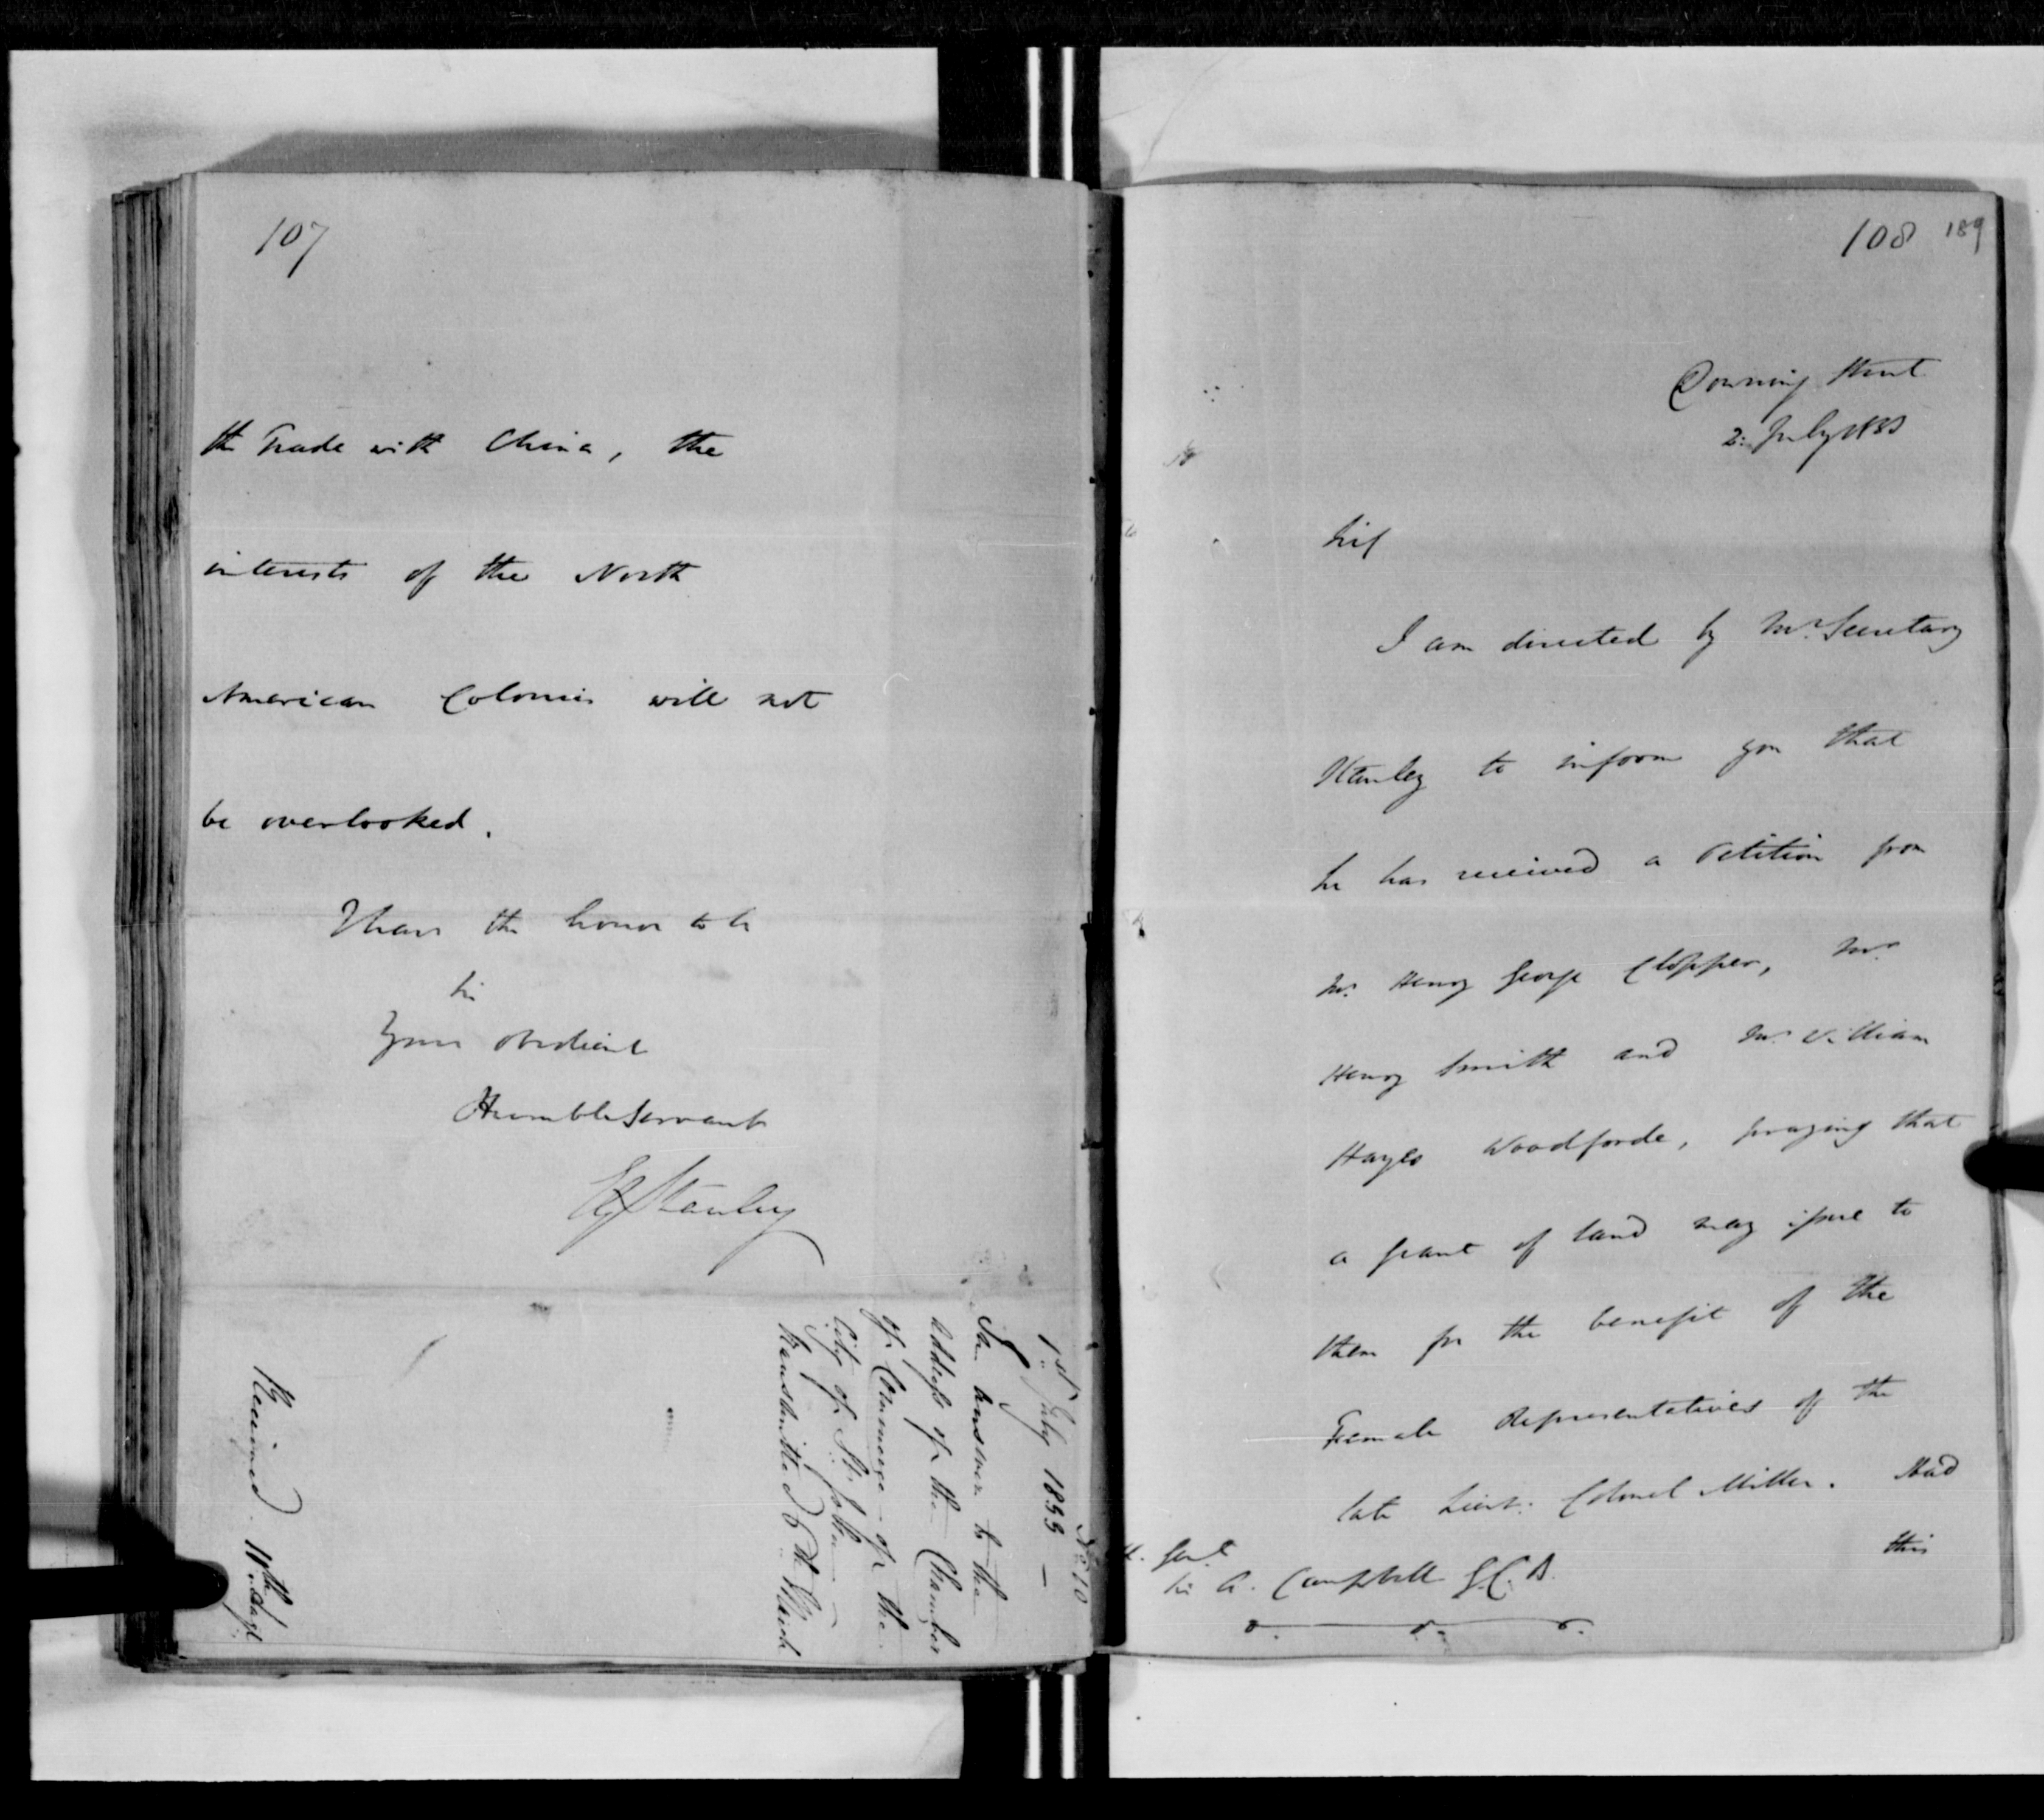 107
the Trade with China, the
interests of the North
American Colonies will not
be overlooked.
I have the honor to be
Sir
Your obedient
Humble Servant
EGStanley
No. 10
1st July 1833 —
In answer to the
Address of the Chamber
of Commerce of the
City of St. John —
transmitted 6th March
Received 10th Augt
108 189
Downing Street
2: July 1833
Sir
I am directed by Mr. Secretary
Stanley to inform you that
he has received a Petition from
Mr. Henry George Clopper, Mr.
Henry Smith and Mr. William
Hayes Woodforde, praying that
a grant of land may issue to
them for the benefit of the
Female Representatives of the
late Lieut: Colonel Miller. Had
this
Genl
Sir A. Campbell G.C.B.